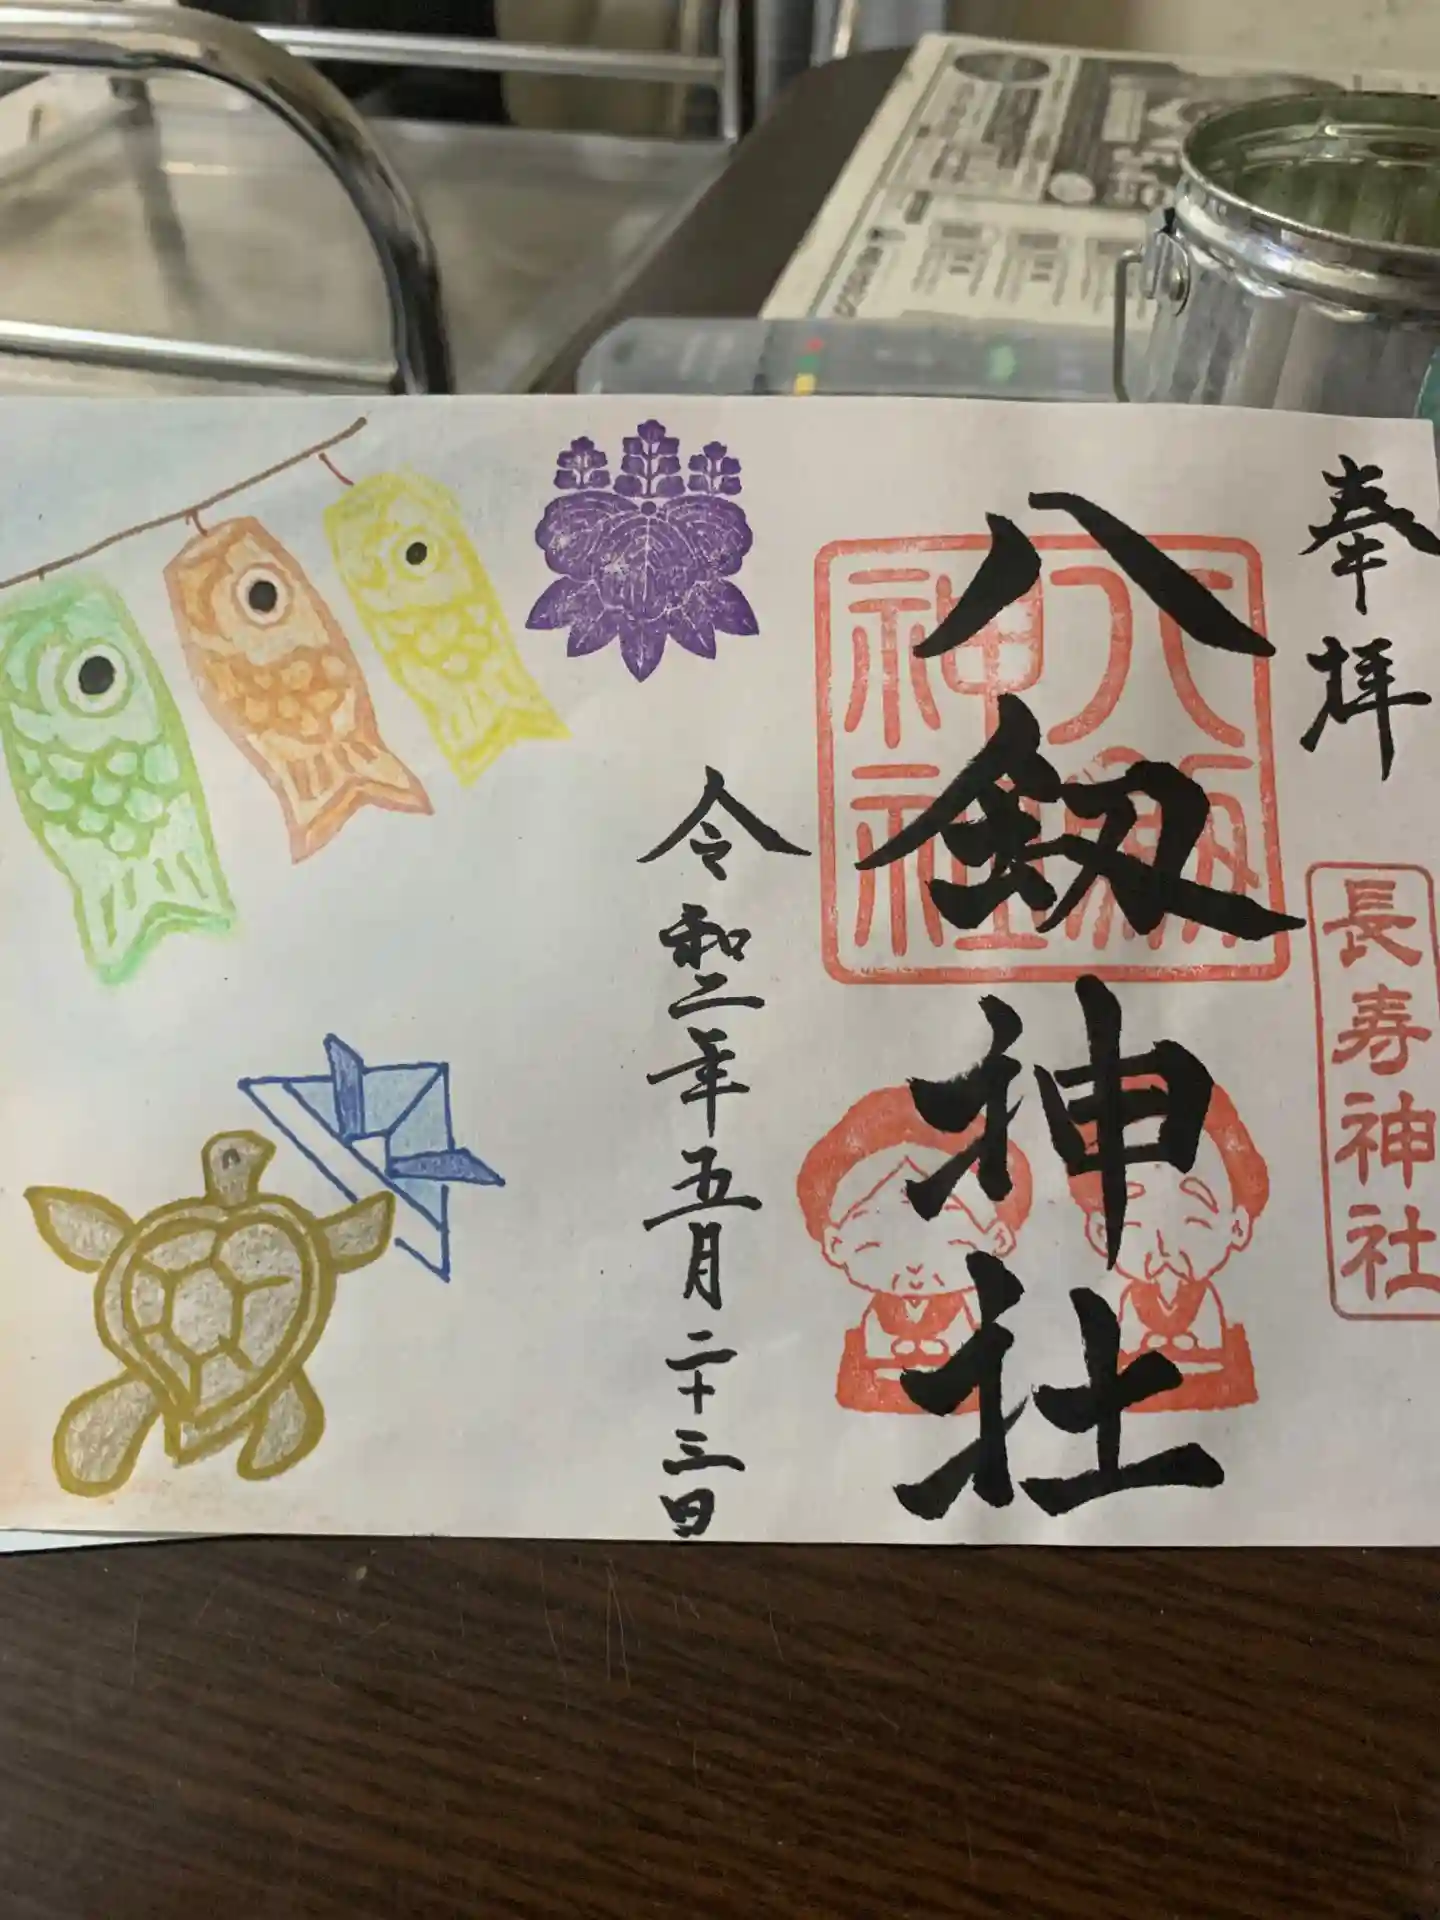 奉拝
長寿神社
八剱神社
八剱神社
令和二年五月二十三日